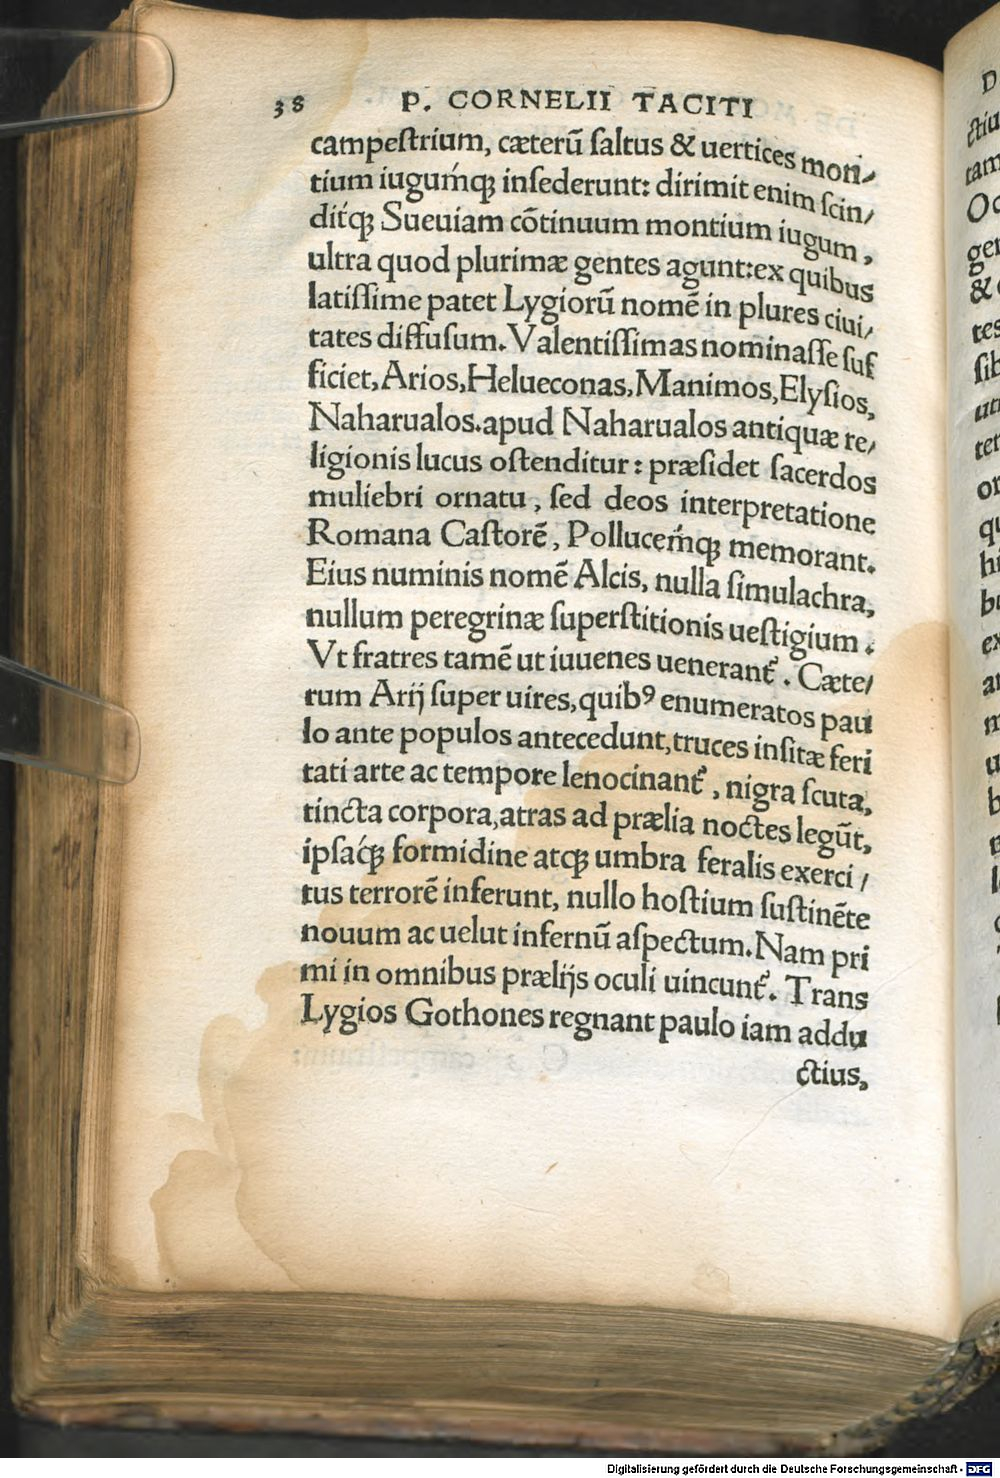 38 P. CORNELII TACITI
campeſtrium, cæterū ſaltus & uertices mon⸗
tium iugumq́ꝫ inſederunt: dirimit enim ſcin⸗
ditq́ꝫ Sueuiam cōtinuum montium iugum,
ultra quod plurimæ gentes agunt: ex quibus
latiſſime patet Lygiorū nomē in plures ciui⸗
tates diffuſum. Valentiſſimas nominaſſe ſuf
ficiet, Arios, Helueconas, Manimos, Elyſios,
Naharualos. apud Naharualos antiquæ re⸗
ligionis lucus oſtenditur: præſidet ſacerdos
muliebri ornatu, ſed deos interpretatione
Romana Caſtorē, Pollucemq́ꝫ memorant.
Eius numinis nomē Alcis, nulla ſimulachra,
nullum peregrinæ ſuperſtitionis ueſtigium.
Vt fratres tamē ut iuuenes uenerant᷑. Cæte⸗
rum Arij ſuper uires, quibꝰ enumeratos pau
lo ante populos antecedunt, truces inſitæ feri
tati arte ac tempore lenocinant᷑, nigra ſcuta,
tincta corpora, atras ad prælia noctes legūt,
ipſaq́ꝫ formidine atqꝫ umbra feralis exerci⸗
tus terrorē inferunt, nullo hoſtium ſuſtinēte
nouum ac uelut infernū aſpectum. Nam pri
mi in omnibus prælijs oculi uincunt᷑. Trans
Lygios Gothones regnant paulo iam addu
ctius,
Digitalisierung gefördert durch die Deutsche Forschungsgemeinschaft - DFG